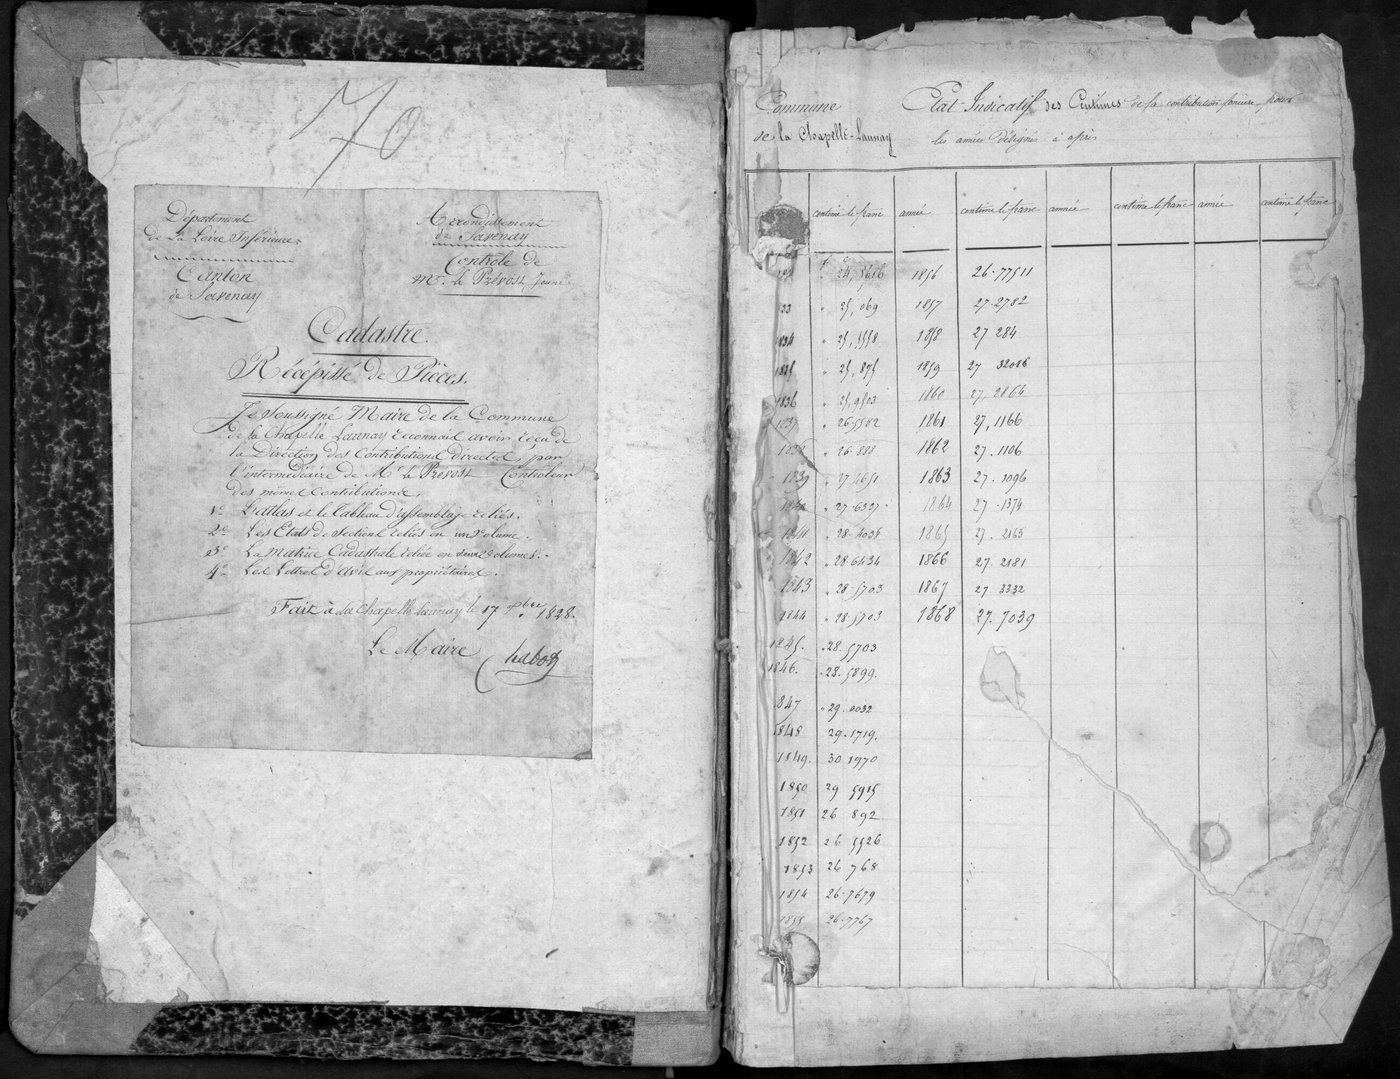 70
Département
de La Loire Inférieure
Canton
de Savenay
Arrondissement
de Savenay
Contrôle de
Mr. le Prévost Jeune
Cadastre.
Récépissé de Pièces.
Je Soussigné Maire de la Commune
de la Chapelle Launay reconnais avoir reçu de
la Direction des Contributions directes, par
l'intermédiaire de Mr le Prévost Contrôleur
des mêmes Contributions,
1° L'atlas et le tableau d'assemblage reliés.
2° Les Etats de Sections reliés en un volume.
3° La Matrice Cadastrale reliée en deux volumes.
4° Les Lettres d'avis aux propriétaires.
Fait à La Chapelle Launay le 17 1828.
Le Maire
Commune
de la Chapelle-Launay
Etat Indicatif des Centimes de la contribution foncière, pour
les années désignées ci après
centime le franc année centime le franc année centime le franc année centime le franc
24,5616 1856 26.77511
33 25,069 1857 27.2782
1834 25,5558 1858 27 284
1835 25,875 1859 27 32016
1836 25,9503 1860 27.2864
1837 26.5582 1861 27,1166
26.888 1862 27.1106
1839 27.4651 1863 27.1096
27.6327 1864 27.1374
1841 28.4038 1865 27.2165
1842 28.6434 1866 27.2181
1843 28.5703 1867 27 3332
1844 28.5703 1868 27.7039
1845. 28.5703
1846. 28.5899.
1847 29.0032
1848 29.1719.
1849. 30 1970
1850 29 5915
1851 26 892
1852 26 5526
1853 26 768
1854 26.7679
1855 26.7767